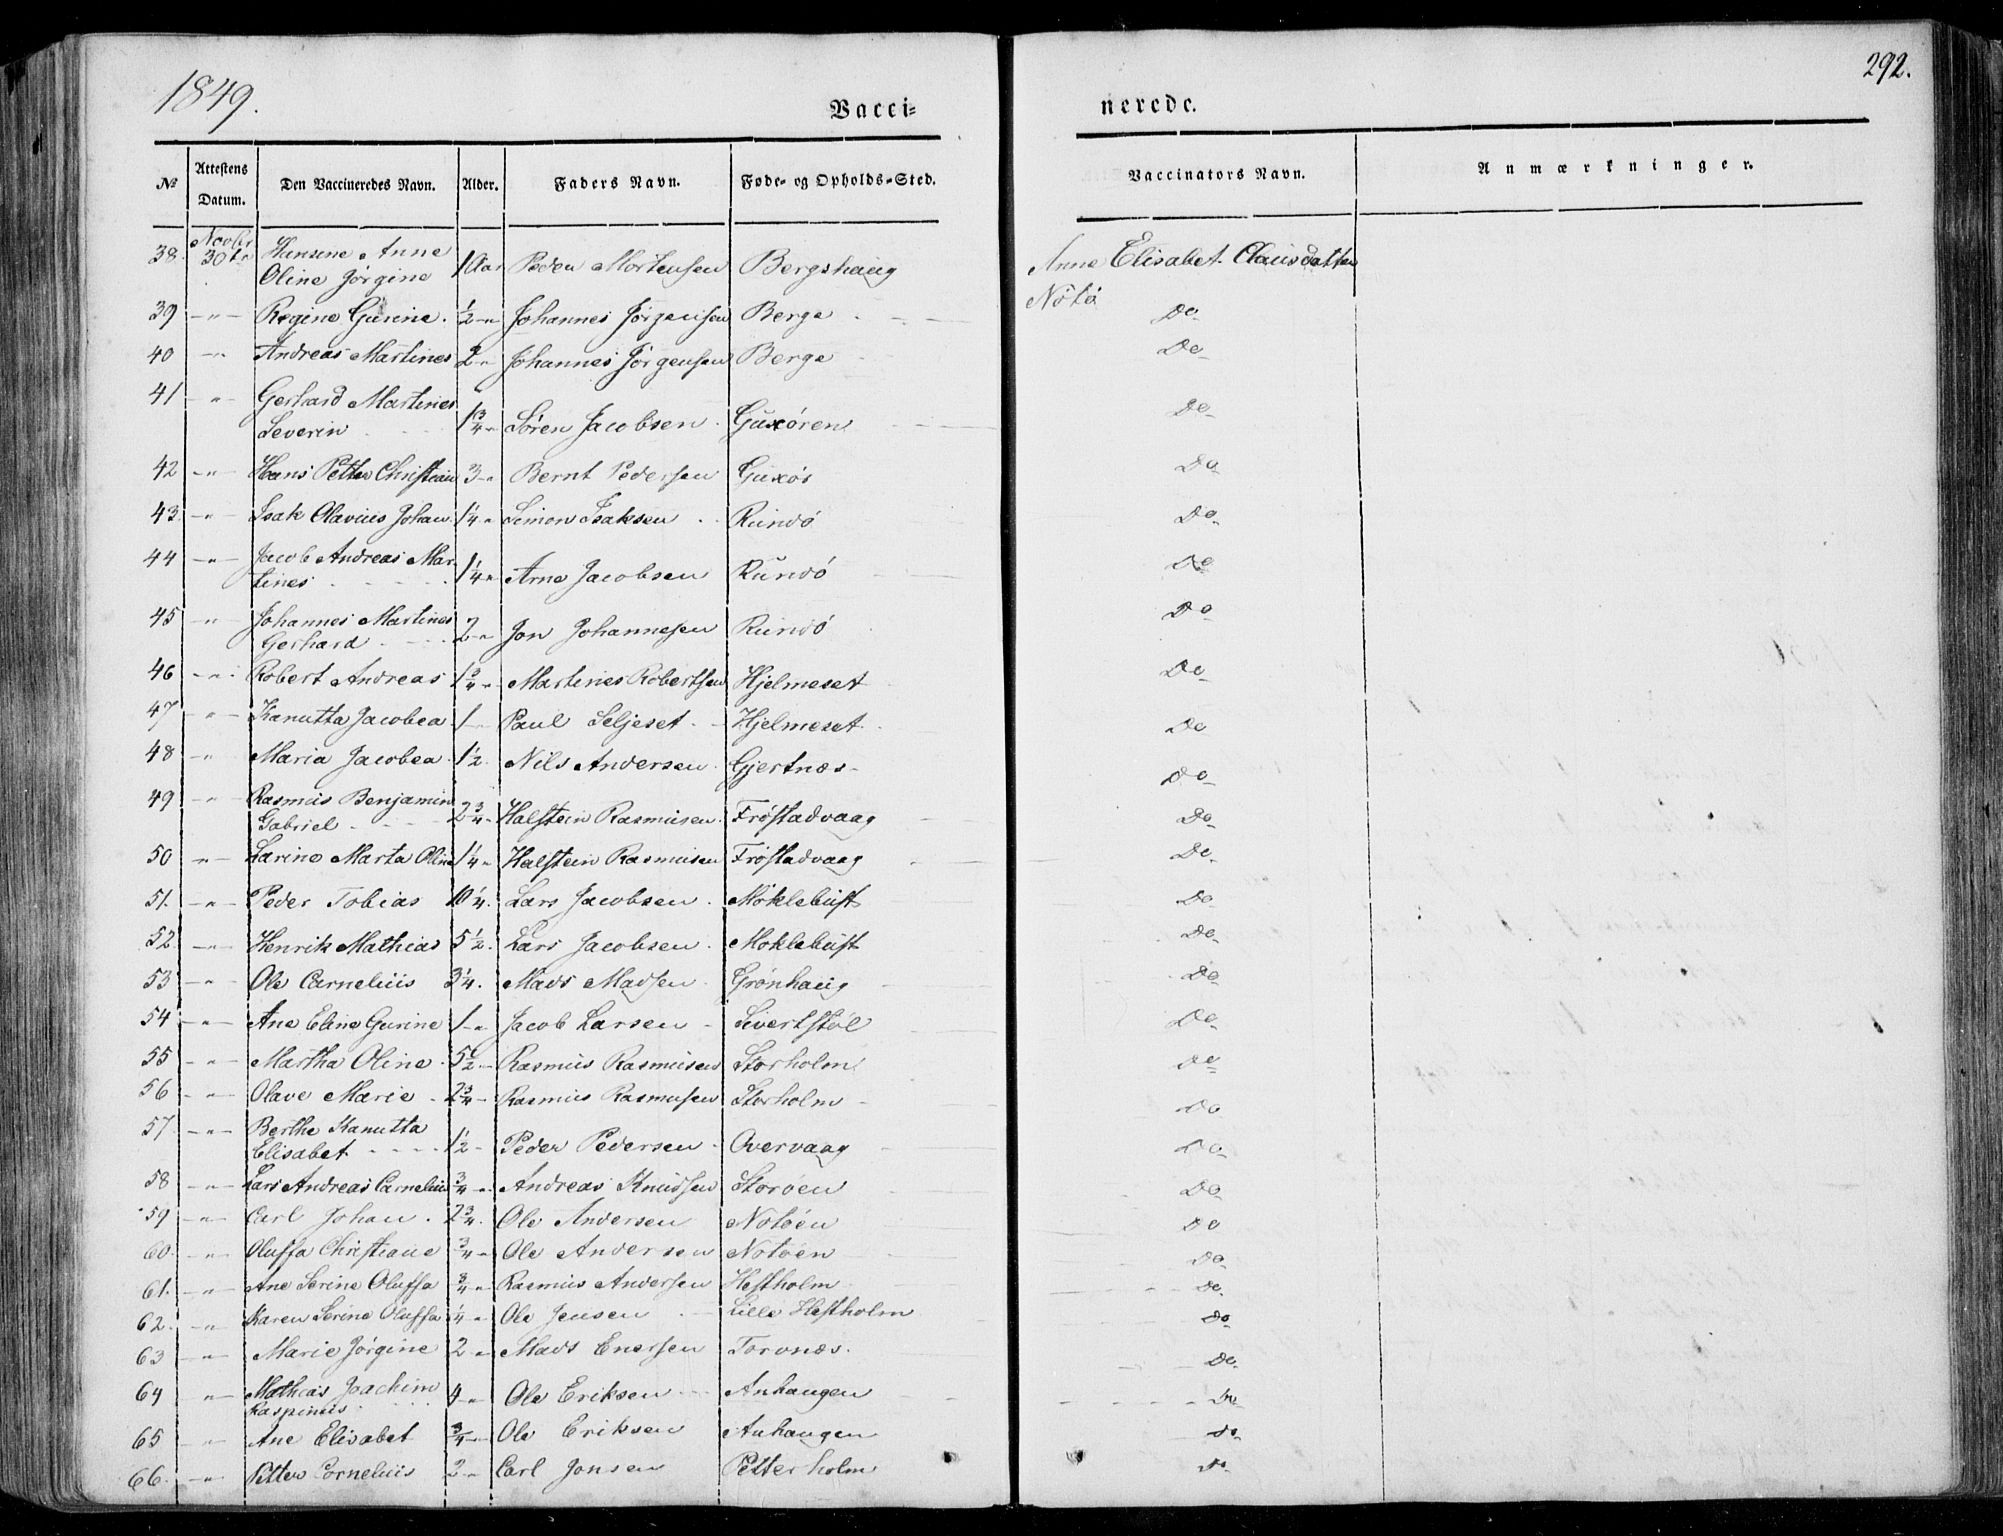 1849.
292.
Vacci=
nerede.
№ Attestens Datum. Den Vaccineredes Navn. Alder. Faders Navn. Føde- og Opholds-Sted. Vaccinators Navn. Anmærkninger.
38. Novbr 30te Hansine Anne
Oline Jørgine 1 Aar Peder Mortensen Bergshaug Anne Elisabet Clausdatter
Notø
39 -"- Regine Gurine. ½ -"- Johannes Jörgensen Berge Do
40 -"- Andreas Martines 2 " Johannes Jörgensen Berge Do
41 " Gerhard Martines
Severin 1¾ " Sören Jacobsen Guxören Do
42 -"- Hans Petter Christian 3 -" Bernt Pedersen Guxör Do
43. -"- Isak Olavius Johan 1¼ " Simon Isaksen Rundö Do
44 -"- Jacob Andreas Mar
tines 1¼ " Arne Jacobsen Rundö Do
45 -"- Johannes Martines
Gerhard 2 -" Jon Johannesen Rundö Do
46 -"- Robert Andreas 1¾ " Martines Robertsen Hjelmeset Do
47 " Kanutta Jacobea 1 - Paul Seljeset Hjelmeset Do
48 -"- Maria Jacobea 1½ Nils Andersen Gjertnæs Do
49 -"- Rasmus Benjamin
Gabriel 2¾ Halstein Rasmusen Fröstadvaag Do
50 -"- Larine Marta Oline 1¼ " Halstein Rasmusen Fröstadvaag Do
51. -"- Peder Tobias 10¼. Lars Jacobsen Möklebust Do
52 -"- Henrik Mathias 5½. Lars Jacobsen Möklebust Do
53 -"- Ole Carnelius 3¼. Mads Madsen Grönhaug Do
54 -"- Ane Eline Gurine 1 -" Jacob Larsen Sivertstöl Do
55 -"- Martha Oline 5½ Rasmus Rasmusen Storholm Do
56 -"- Olave Marie 2¾ Rasmus Rasmusen Storholm Do
57 -"- Berthe Kanutta
Elisabet 1½ Peder Pedersen Overvaag Do
58 -"- Lars Andreas Carnelius ¾ " Andreas Knudsen Storöen Do
59 -"- Carl Johan 2¾. Ole Andersen Notöen Do
60. -"- Oluffa Christiane ¾ " Ole Andersen Notöen Do
61. -"- Ane Serine Oluffa ¾ " Rasmus Andersen Hestholm Do
62. -"- Karen Serine Oluffa ¼ " Ole Jensen Lille Hestholm Do
63 -"- Marie Jörgine 2 " Mads Enersen Tornæs. Do
64 -"- Mathias Joachim
Kaspinus 4 -" Ole Eriksen Anhaugen Do
65 " Ane Elisabet ¾ Ole Eriksen Anhaugen do
66. -"- Petter Cornelius 2 -" Carl Jonsen Petterholm Do